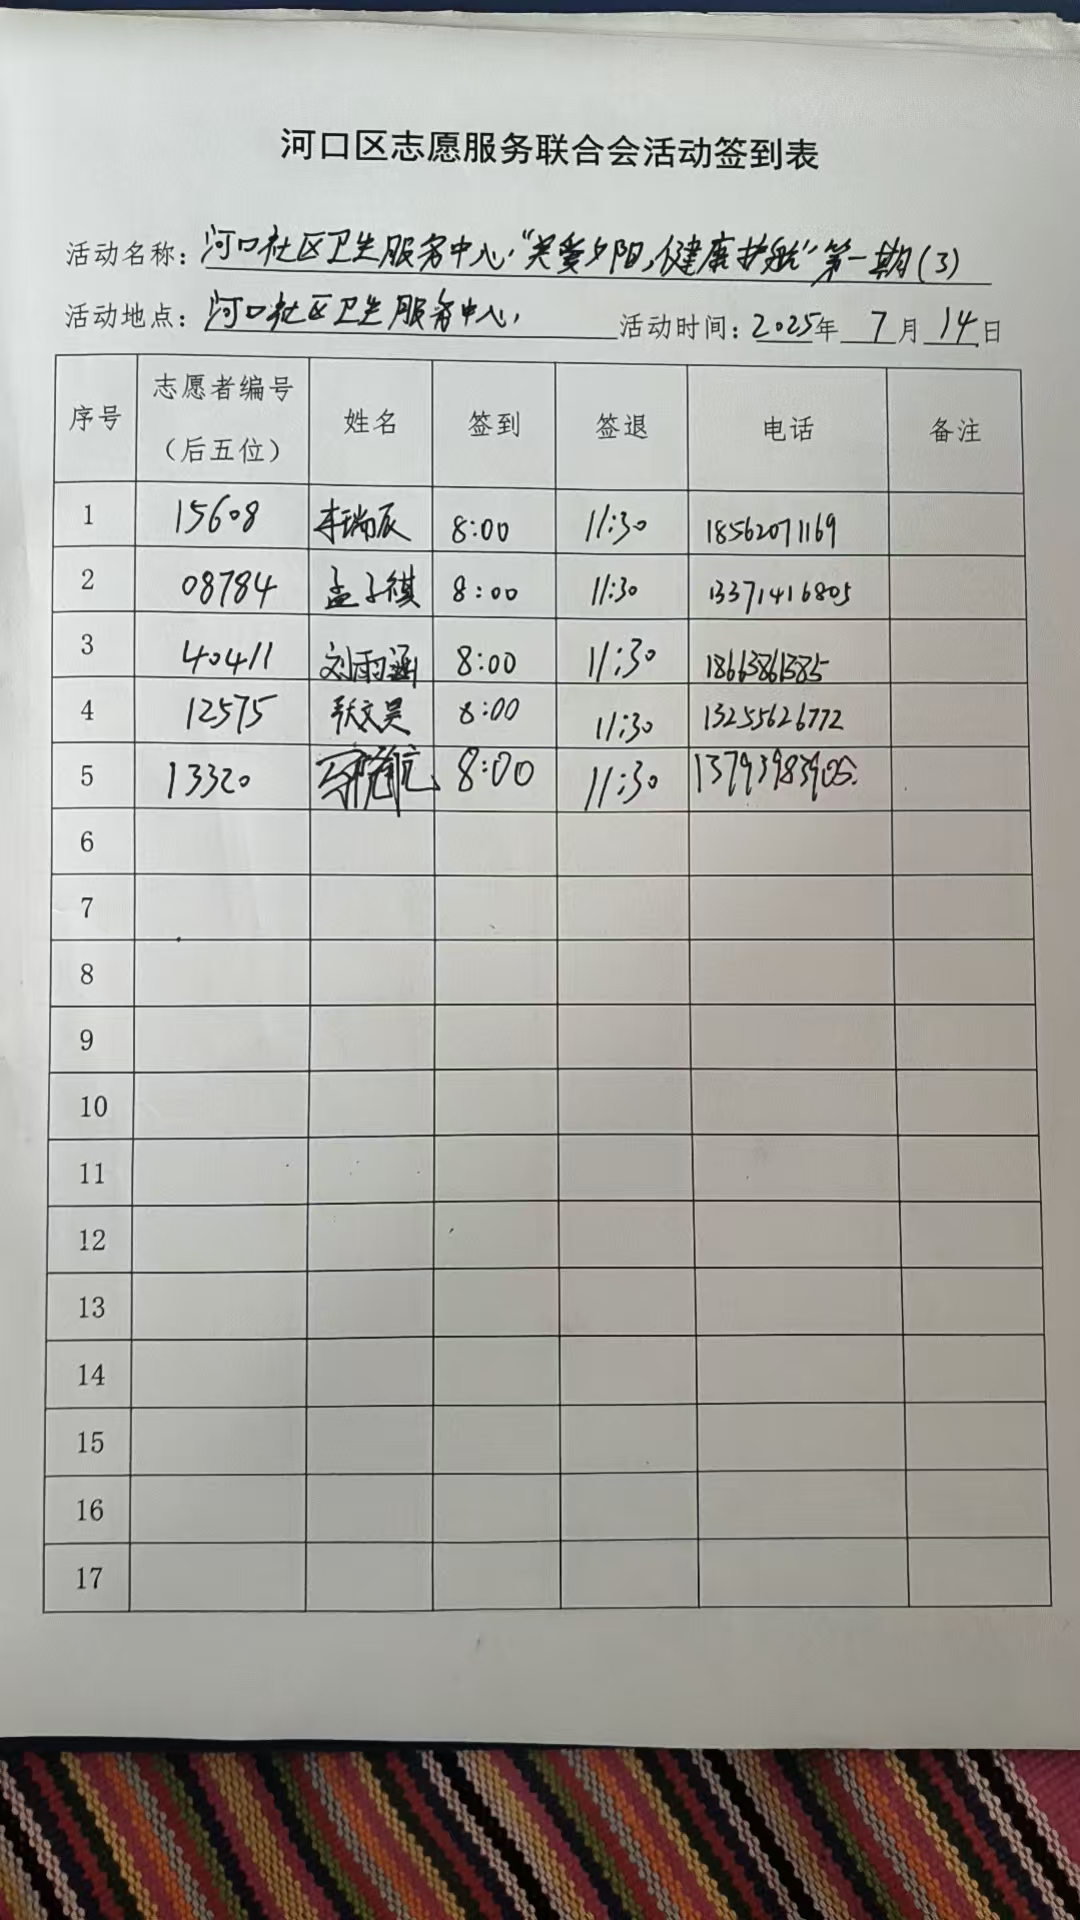 河口区志愿服务联合会活动签到表
活动名称: 河口社区卫生服务中心“关爱夕阳,健康护航”第一期(3)
活动地点: 河口社区卫生服务中心 活动时间: 2025年 7月 14日
序号 志愿者编号（后五位） 姓名 签到 签退 电话 备注
1 15608 李瑞辰 8:00 11:30 18562071169
2 08784 孟子祺 8:00 11:30 13371416805
3 40411 刘雨涵 8:00 11:30 18663861385
4 12575 张文昊 8:00 11:30 13255626772
5 13320 8:00 11:30 13793983905
6
7
8
9
10
11
12
13
14
15
16
17